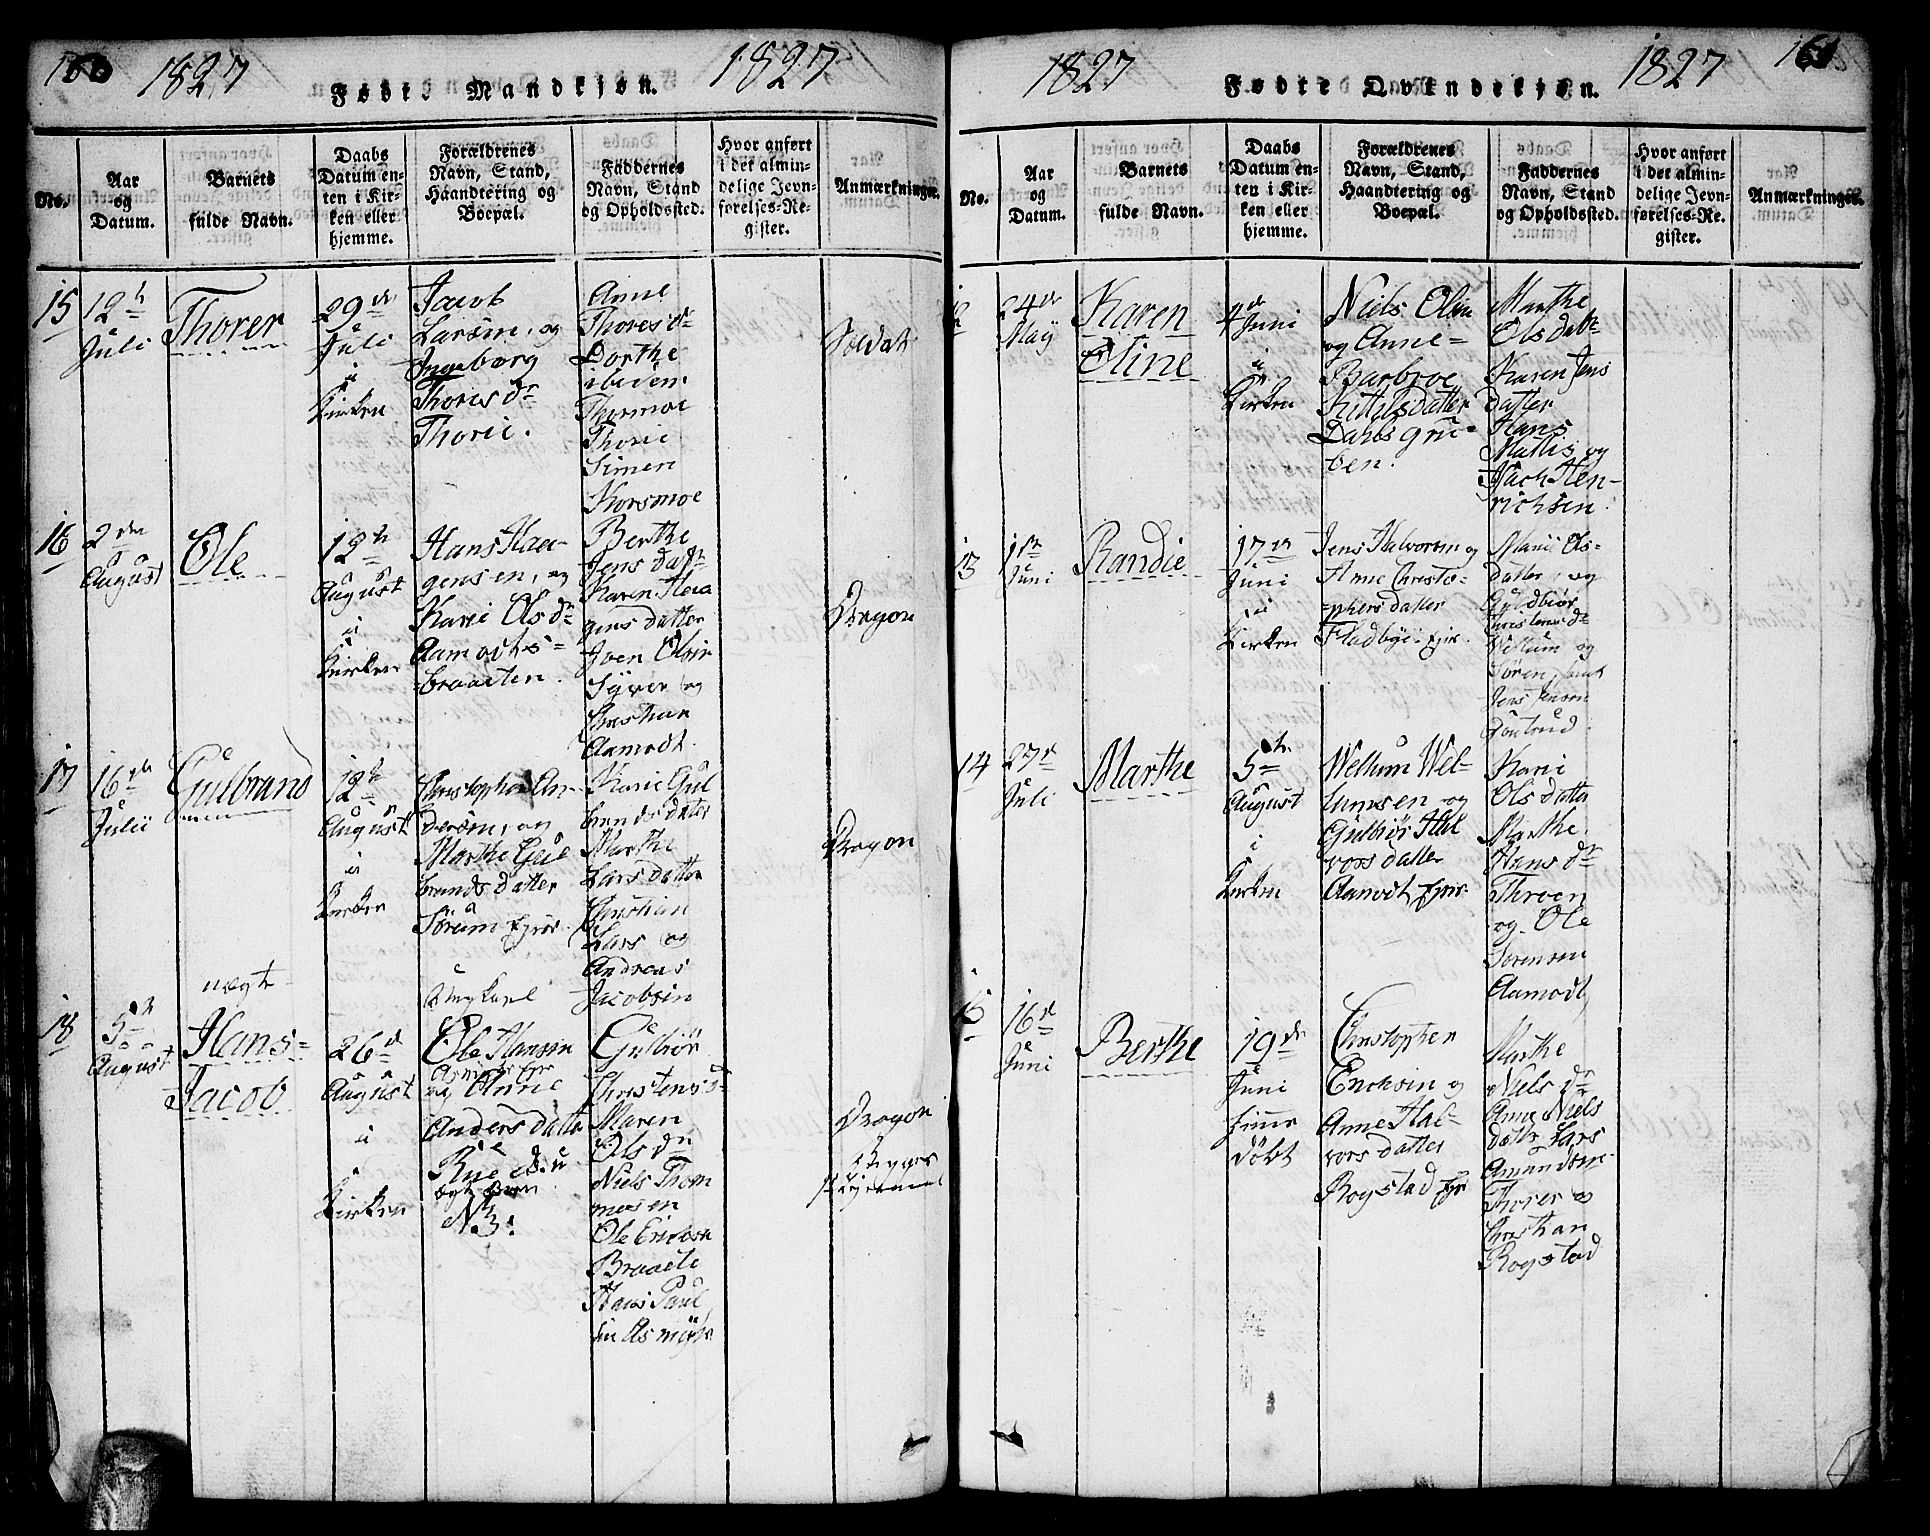 160
1827
Fødte Mandkjøn.
1827
No.
Aar og Datum.
Barnets fulde Navn.
Daabs Datum enten i Kirken eller hjemme.
Forældrenes Navn, Stand, Haandtering og Boepæl.
Faddernes Navn, Stand og Opholdssted.
Hvor anført i det almindelige Jevnførelses-Register.
Anmærkninger.
15
12te
Juli
Thorer
29de
Juli
i
Kirken
Jacob
Larsøn, og
Ingeborg
Thoresdr
Thorie.
Anne
Thoresdr
Dorthe
ibidem
Thormoe
Thorie
Simen
Korsmoe
Soldat
16
2den
August
Ole
12te
August
i
Kirken
Hans Haa-
gensen, og
Karie Olsdr
Aamodts-
braaten.
Berthe
Jens datr
Karen Haa
gens datter
Iver Olsen
Syver og
Christian
Aamodt.
Dragon
17
16de
Julii
Gulbrand
12te
August
i
Kirken
Christopher An-
dersøn, og
Marthe Gul
brands datter
Sørum Ejer.
Karie Gul
brands datter
Marthe
Lars datter
Christian
Lars og
Andreas
Jacobsen
Dragon
18
5te
August
uægte
Hans-
Jacob
26de
August
i
Kirken
Ungkarl
Ole Hansen
og Anne
Anders datter
Rue d. u
ægt Barn
N 3.
Gulbiør
Christensdr
Maren
Ols dr
Niels Thom
mesen
Ole Erichsen
Braaete
Hans Paul
sen Asmyhr
Dragon
161
1827
Fødte Qvindekjøn.
1827
No.
Aar og Datum.
Barnets fulde Navn.
Daabs Datum enten i Kirken eller hjemme.
Forældrenes Navn, Stand, Haandtering og Boepæl.
Faddernes Navn, Stand og Opholdssted.
Hvor anført i det almindelige Jevnførelses-Register.
Anmærkninger.
12
24de
Maÿ
Karen
Oline
4de
Juni
i
Kirken
Niels Olsen
og Anne-
Barbroe
Kittilsdatter
Dahlsgru-
ben.
Marthe
Olsdatr
Karen Jens
datter
Hans
Mathis og
Zach Hen-
richsen.
13
1ste
Juni
Randie
17de
Juni
i
Kirken
Jens Halvorsen og
Anne Christo-
phers datter
Fladbye Ejer.
Marie Ols-
datter, og
Guldbiør
Christensdr
Wellum og
Søren, samt
Jens Jensen
14
27de
Juli
Marthe
5te
August
i
Kirken
Wellum Wel-
lumsen og
Gulbiør Hal
vors datter
Aamodt Ejer.
Karie
Ols datter
Marthe
Hans dr
Throen
og Ole
Sørensen
Aamodt
15
16de
Juni
Berthe
19de
Juni
hjime
døbt
Christopher
Erichsen og
Anne Hal-
vors datter
Rogstad Ejr
Marthe
Niels dr
Anne Niels
datr Lars
Amundsen
Thorer og
Christian
Rogstad